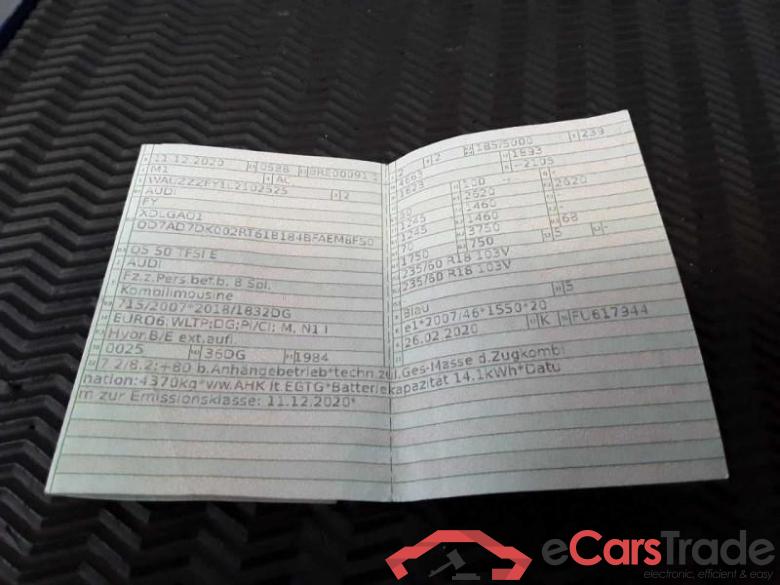 11.12.2020 0588 BRE00091
M1 AC
WAUZZZFY1L2102525 2
AUDI
FY
XDLGA01
QD7AD7DK002RT61B184BFAEM8FS0
Q5 50 TFSI E
AUDI
Fz.z.Pers.bef.b. 8 Spl.
Kombilimousine
715/2007*2018/1832DG
EURO6;WLTP;DG;PI/CI; M, N1 I
Hybr.B/E ext.aufl
0025 36DG 1984
2 2 185/5000 239
4663 1893
1623 -2105
100 -
2620 2620
1245 1460
1245 1460
70 3750 68
1750 750 5 -
235/60 R18 103V
235/60 R18 103V
Blau 5
e1*2007/46*1550*20
26.02.2020 K FU617944
7.2/8.2:+80 b.Anhängebetrieb*techn.zul.Ges-Masse d.Zugkombi
nation:4370kg*ww.AHK lt EGTG*Batteriekapazität 14.1kWh*Datu
m zur Emissionsklasse: 11.12.2020*
eCarsTrade
electronic, efficient & easy